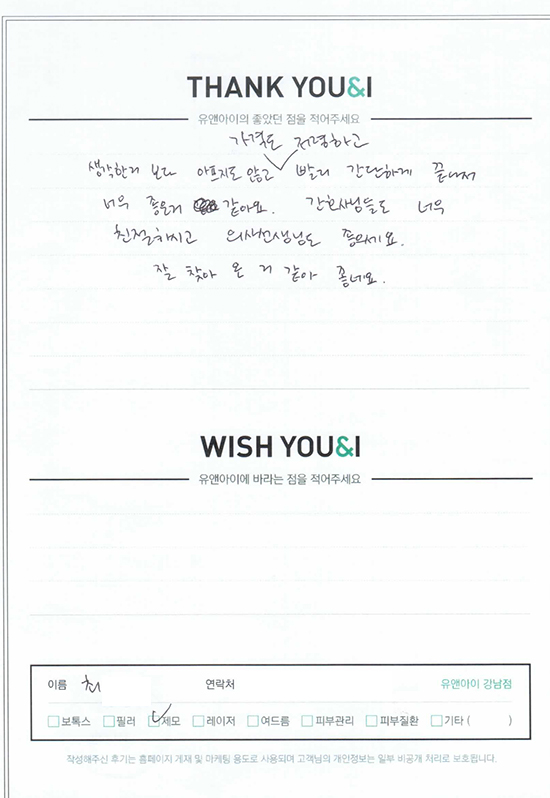 THANK YOU&I
유앤아이의 좋았던 점을 적어주세요
가격도 저렴하고
생각한거 보다 아프지도 않고 빨리 간단하게 끝나서
너무 좋은거 같아요. 간호사님들도 너무
친절하시고 의사선생님도 좋으세요.
잘 찾아 온 거 같아 좋네요.
WISH YOU&I
유앤아이에 바라는 점을 적어주세요
이름 최 연락처 유앤아이 강남점
보톡스 필러 제모 레이저 여드름 피부관리 피부질환 기타 ( )
작성해주신 후기는 홈페이지 게재 및 마케팅 용도로 사용되며 고객님의 개인정보는 일부 비공개 처리로 보호됩니다.